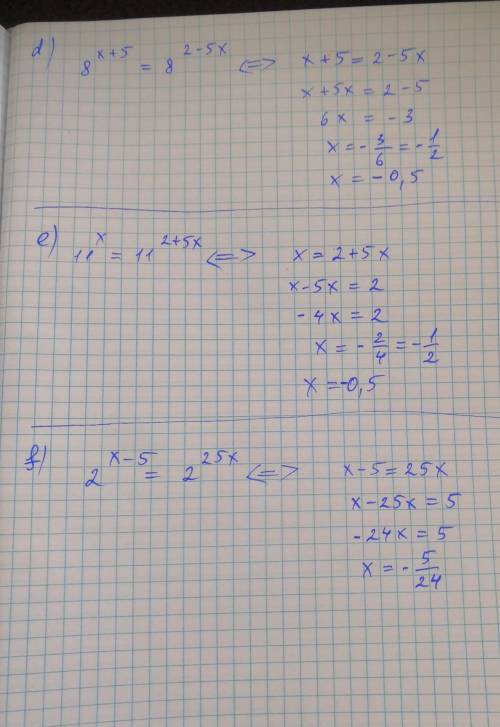 d) 8^(x+5) = 8^(2-5x) <=> x+5 = 2-5x
x+5x = 2-5
6x = -3
x = -3/6 = -1/2
x = -0,5
e) 11^x = 11^(2+5x) <=> x = 2+5x
x-5x = 2
-4x = 2
x = -2/4 = -1/2
x = -0,5
f) 2^(x-5) = 2^(25x) <=> x-5 = 25x
x-25x = 5
-24x = 5
x = -5/24